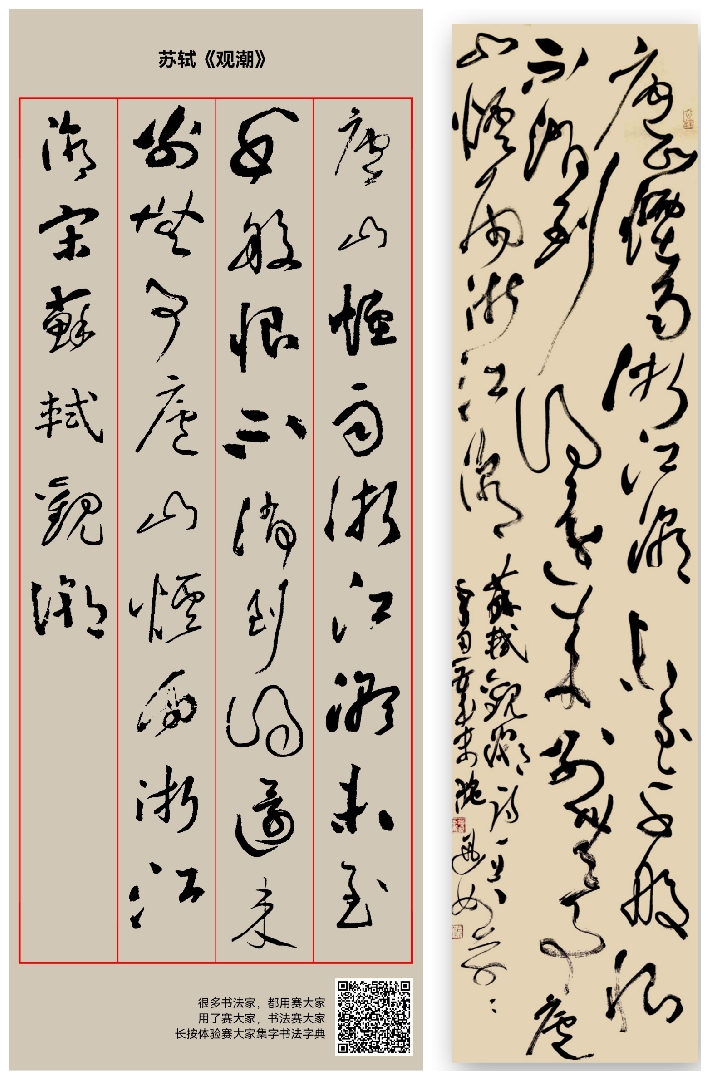 苏轼《观潮》
廬山煙雨浙江潮未至
千般恨不消到得還来
别無事廬山煙雨浙江
潮宋蘇軾觀潮
很多书法家，都用赛大家
用了赛大家，书法赛大家
长按体验赛大家集字书法字典
廬山煙雨浙江潮未至千般恨
不消到得還来别無事廬
山煙雨浙江潮
蘇軾觀潮詩一首